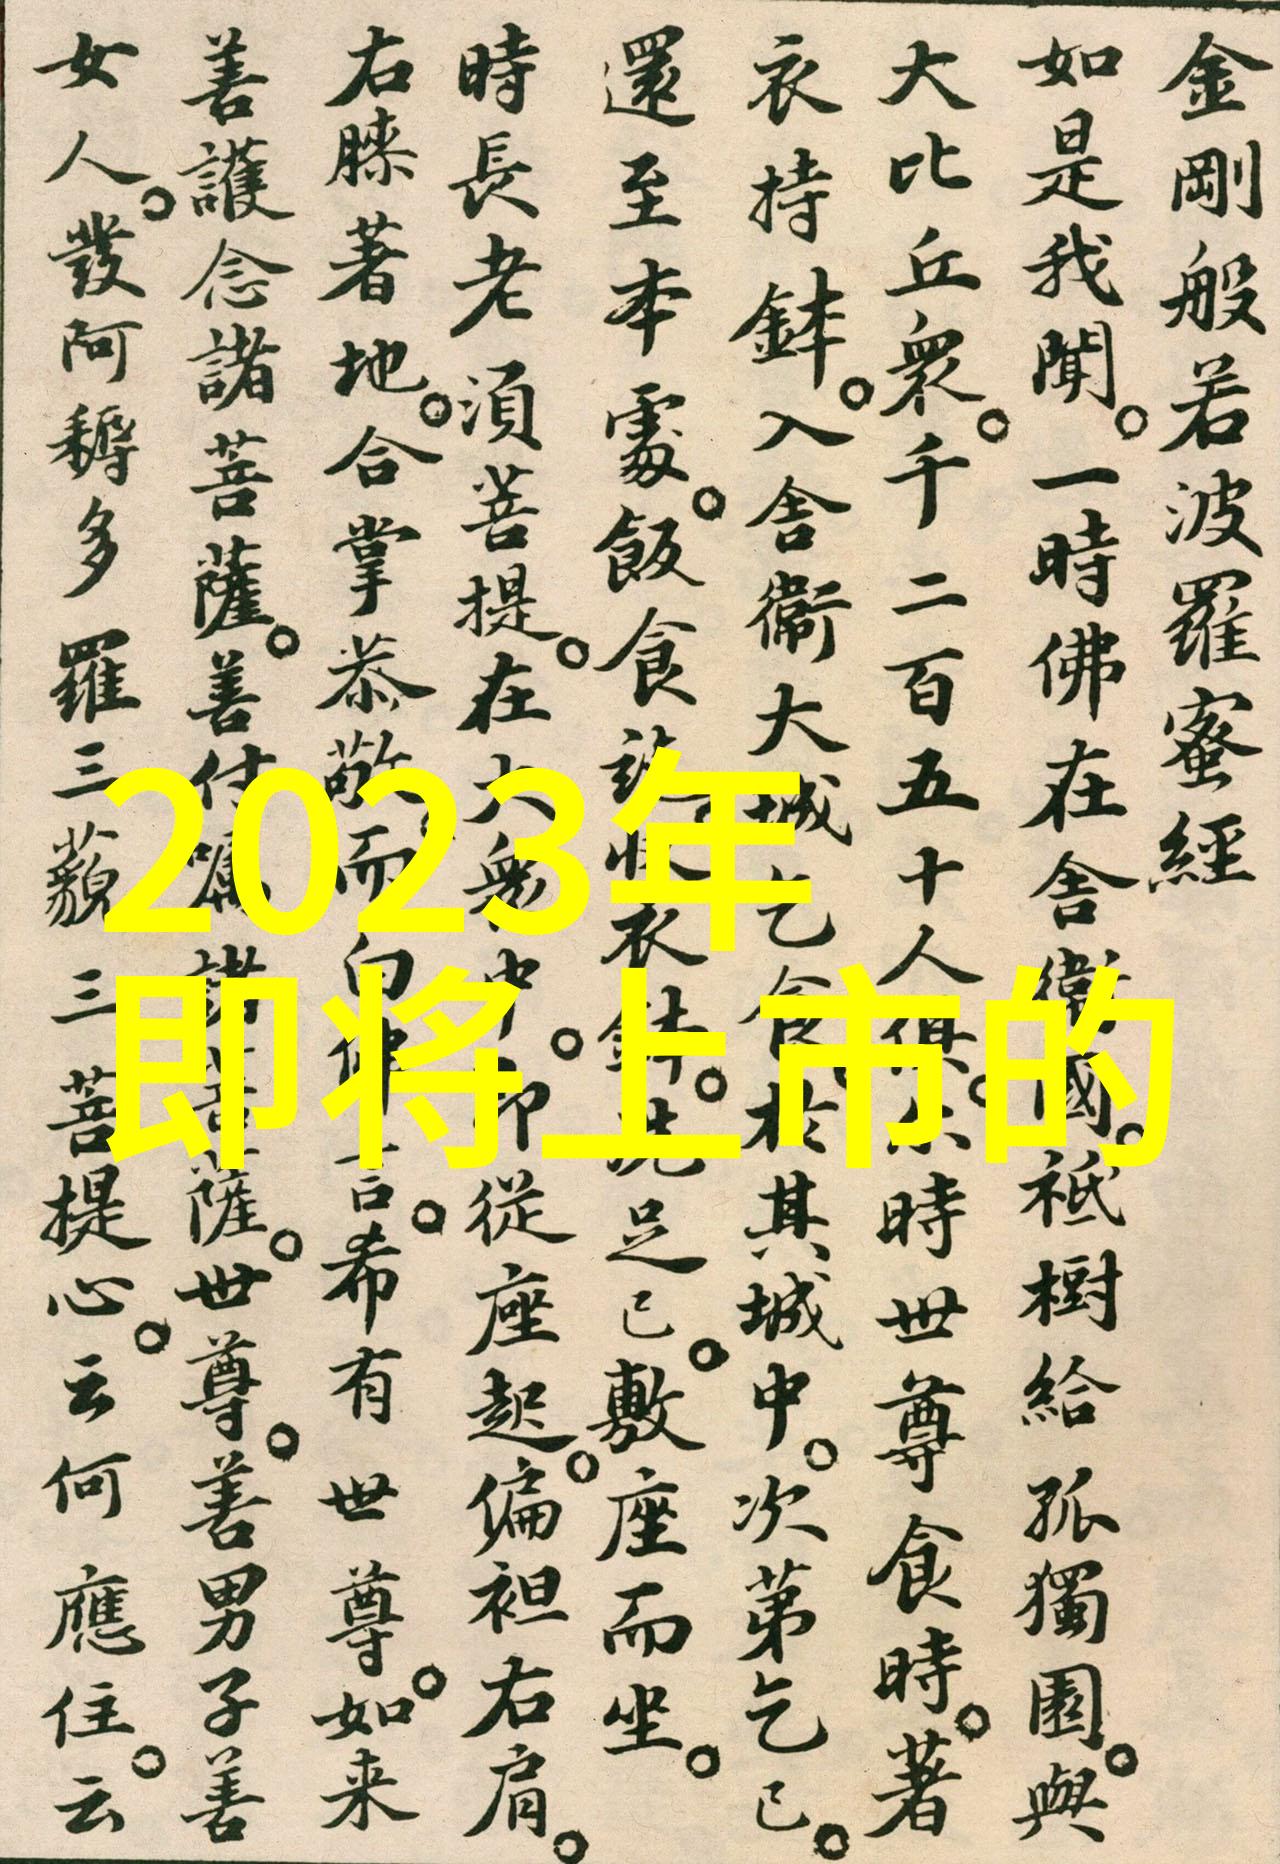 金剛般若波羅蜜經
如是我聞。一時佛在舍衛國。祇樹給孤獨園。與
大比丘衆。千二百五十人俱。尔時世尊食時。著
衣持鉢。入舍衛大城乞食。於其城中。次第乞已。
還至本處。飯食訖。收衣鉢。洗足已。敷座而坐。
時長老須菩提。在大衆中。即從座起。偏袒右肩。
右膝著地。合掌恭敬。而白佛言。希有世尊。如来
善護念諸菩薩。善付囑諸菩薩。世尊。善男子善
女人。發阿耨多羅三藐三菩提心。云何應住。云
2023年
即将上市的